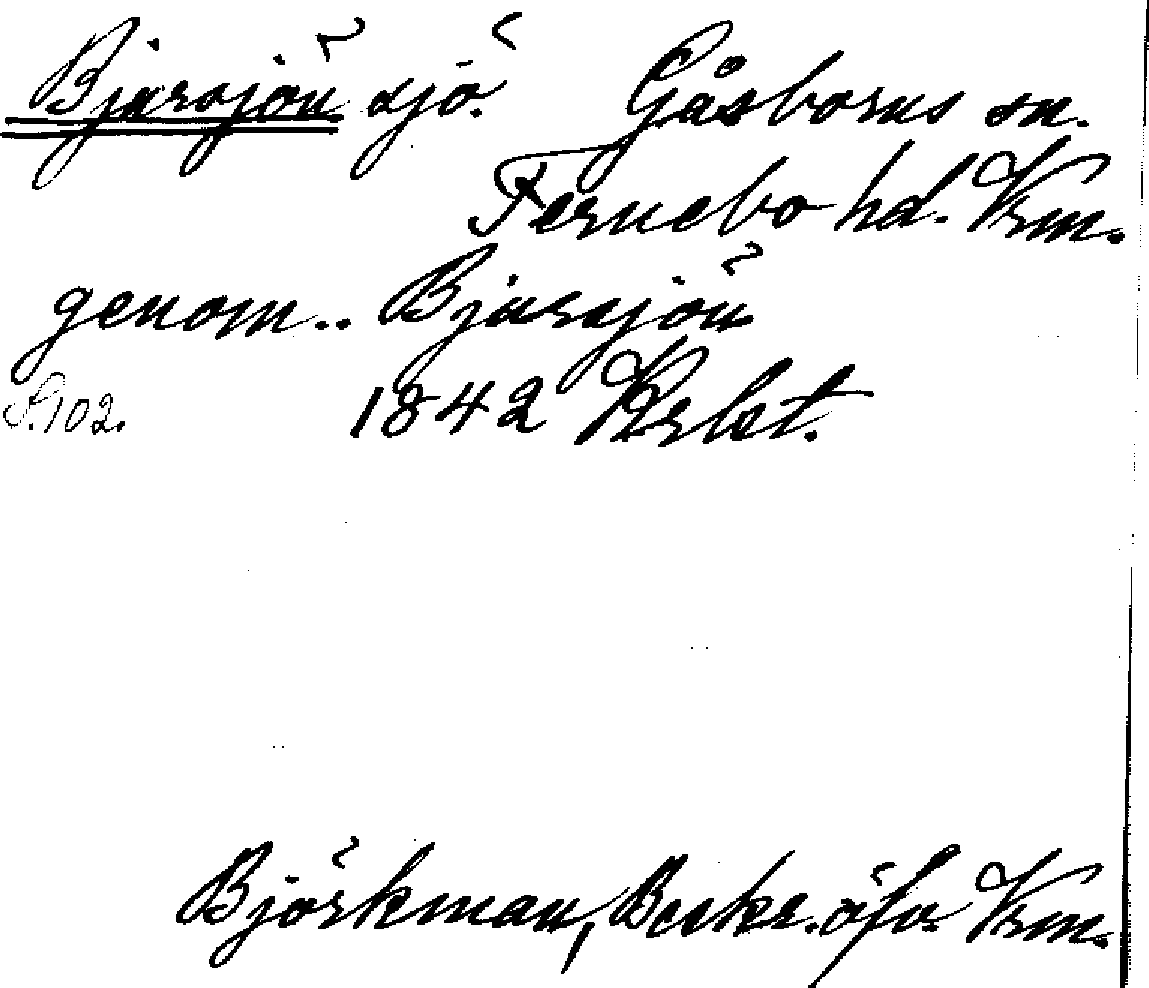 Bjursjön sjö. Gåsborns sn.
Fernebo hd. Vrm.
genom.. Bjursjön
S. 102. 1842 Krlst.
Björkman, Beskr. öfv. Vrm.